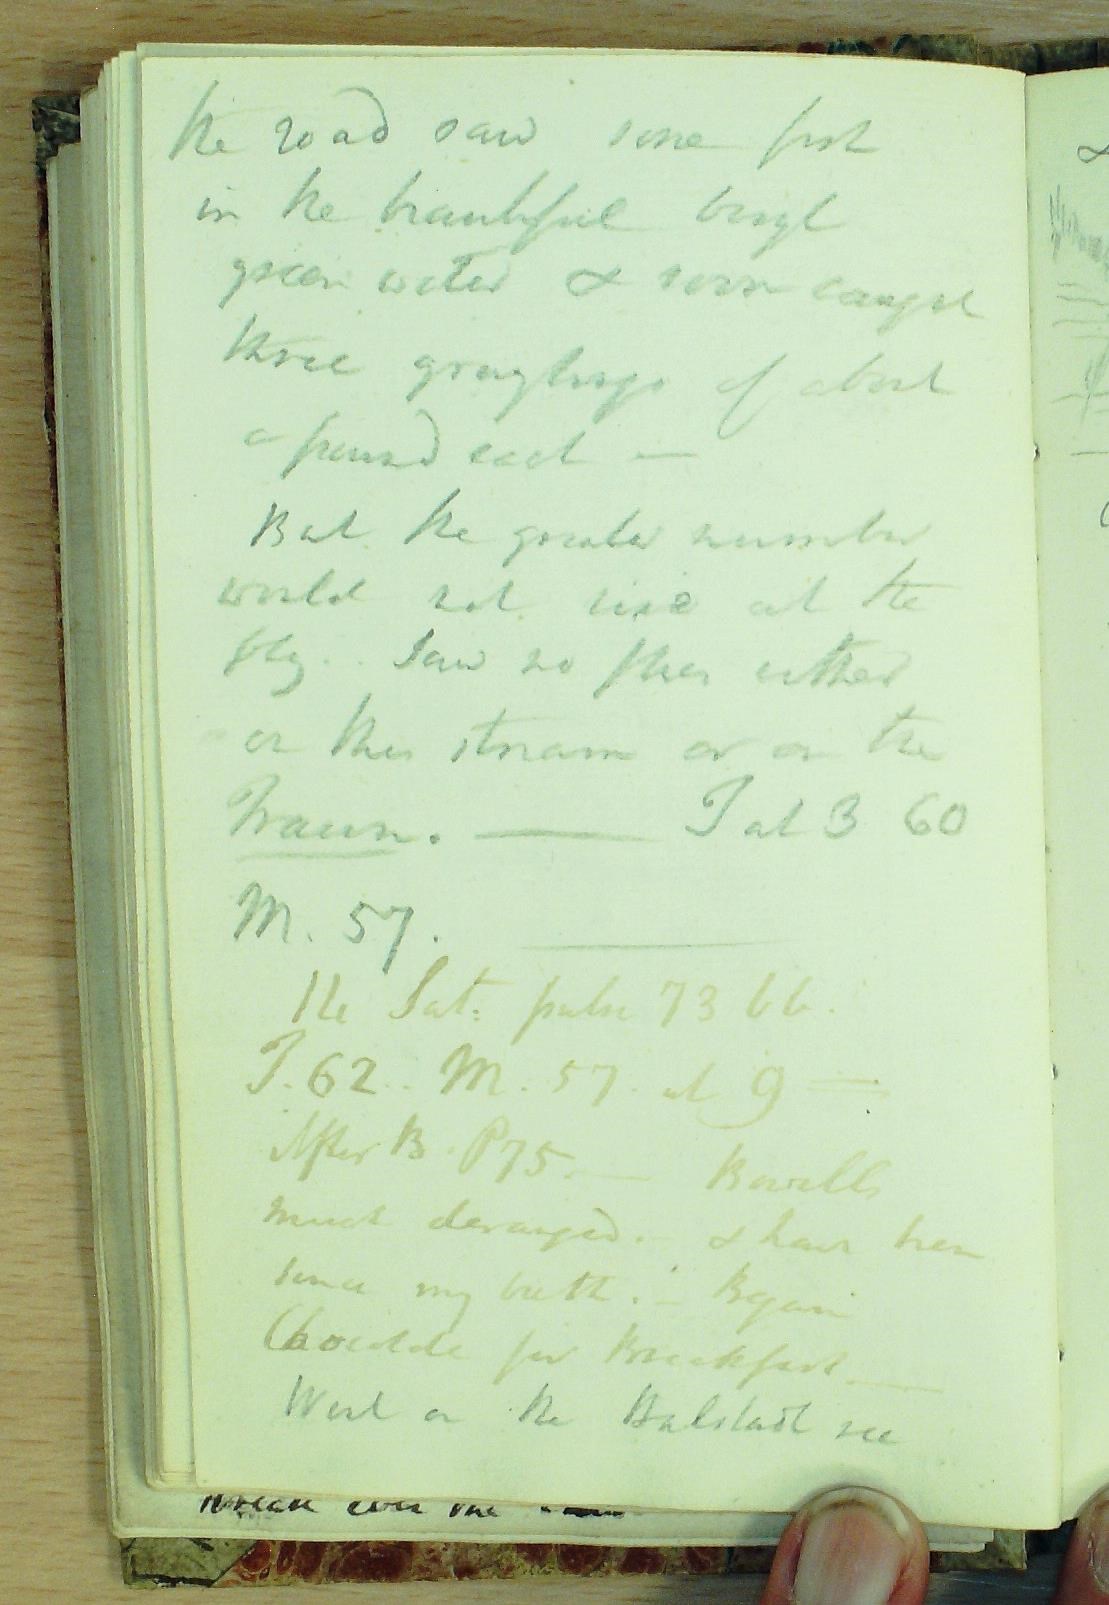 the road saw some fish
in the beautiful beryl
green water & soon caught
three graylings of about
a pound each —
But the greater number
would not rise at the
fly.. Saw no flies either
on this stream or on the
Traun. — T at 3 60
M. 57. —
The Sat: pulse 73 66.
T. 62.. M. 57. at 9 =
After B. P 75. — Bowells
much deranged. — & have been
since my bath. — Began
Chocolate for Breakfast —
Went on the Halstadt see